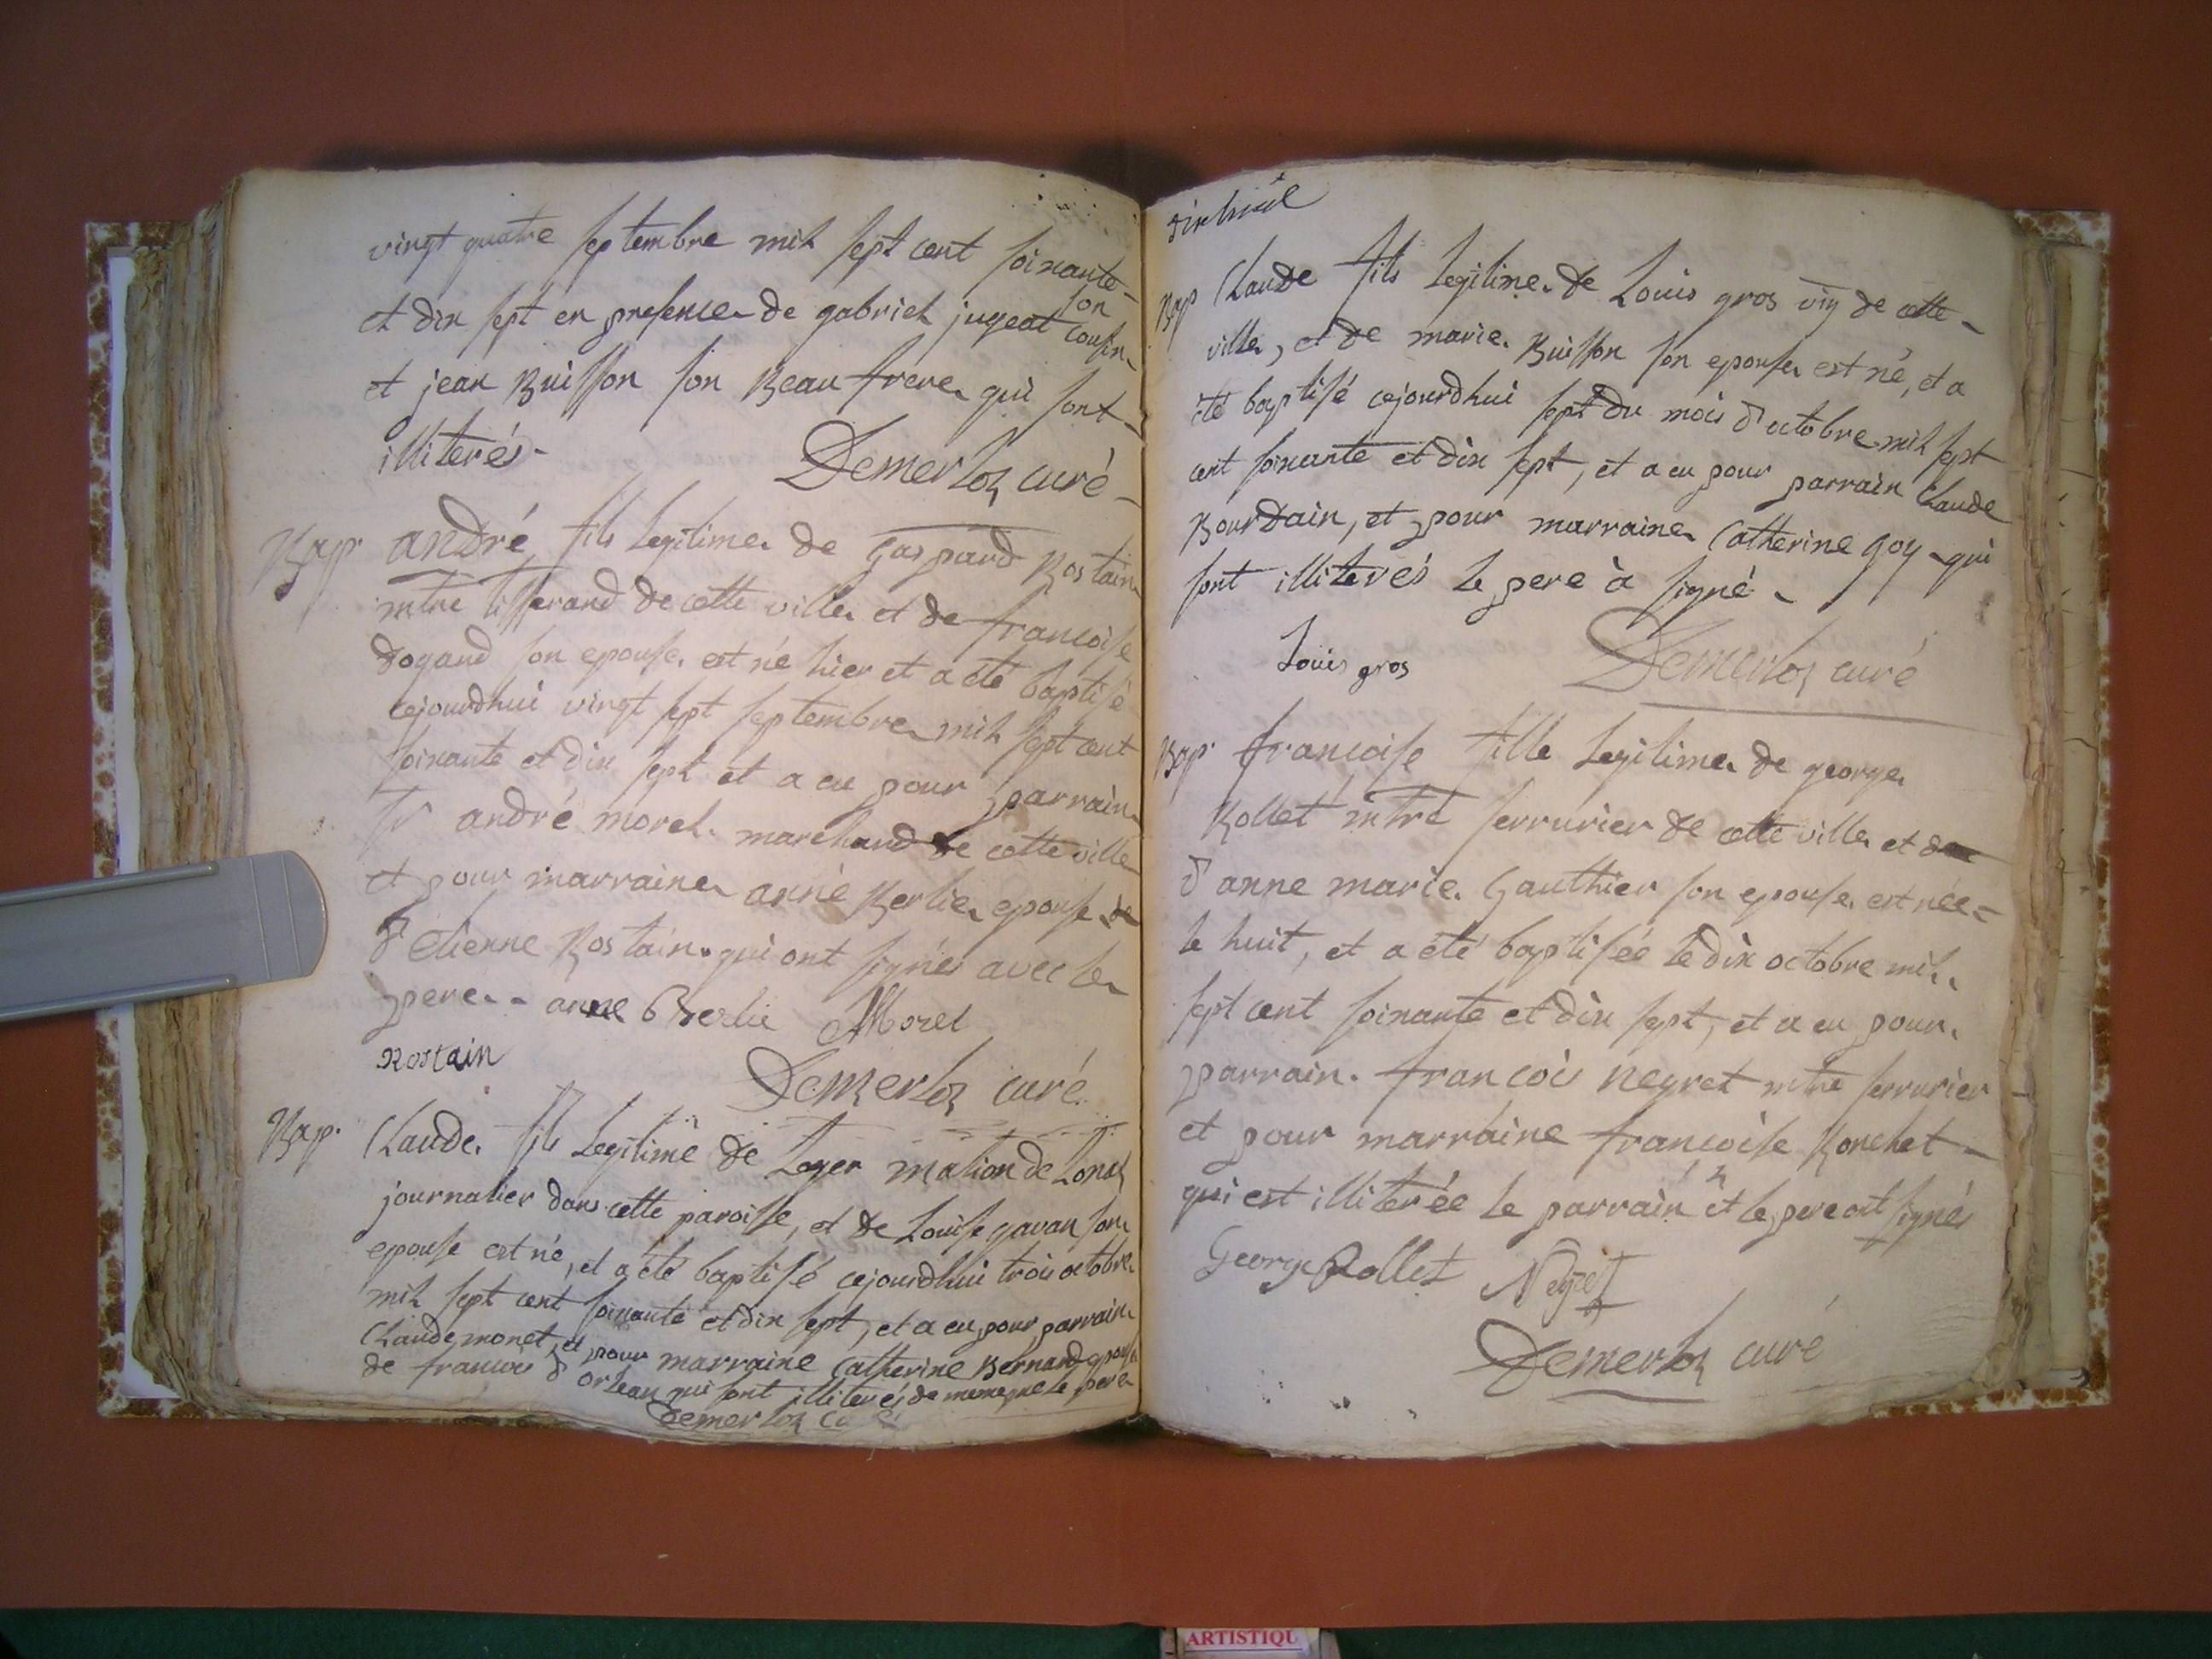 vingt quatre septembre mil sept cent soixante
et dix sept en presence de gabriel jugeat son cousin
et jean Buisson son Beau frere qui sont
illiterés.
Demerloz curé
Bap. andré fils legitime de Gaspard Rostain
mtre tisserand de cette ville et de francoise
dogand son epouse est né hier et a été baptisé
cejourdhui vingt sept septembre mil sept cent
soixante et dix sept et a eu pour parrain
Sr andré morel marchand de cette ville
et pour marraine anne Berlie epouse de
d'etienne Rostain qui ont signés avec le
pere. anne Berlie AMorel
Rostain
Demerloz curé
Bap. Claude fils legitime de Leger mation de Lons
journalier dans cette paroisse, et de Louise gavan son
epouse est né, et a été baptisé cejourdhui trois octobre
mil sept cent soixante et dix sept, et a eu pour parrain
Claude monet, et pour marraine Catherine Bernard epouse
de francois d'orlean qui sont illiterés de meme que le pere
Demerloz curé
dix huit
Bap Claude fils legitime de Louis gros vig de cette
ville, et de marie Buisson son epouse est né, et a
été baptisé cejourdhui sept du mois d'octobre mil sept
cent soixante et dix sept, et a eu pour parrain Claude
Bourdain, et pour marraine Catherine goy qui
sont illiterés le pere à signé
Louis gros
Demerloz curé
Bap. francoise fille legitime de george
Rollet mtre serrurier de cette ville et de
d'anne marie Gauthier son epouse est née
le huit, et a été baptisée le dix octobre mil
sept cent soixante et dix sept, et a eu pour
parrain francois negret mtre serrurier
et pour marraine francoise Ronchet
qui est illiterée le parrain et le pere ont signés
George Rollet Negret
Demerloz curé
ARTISTIQU